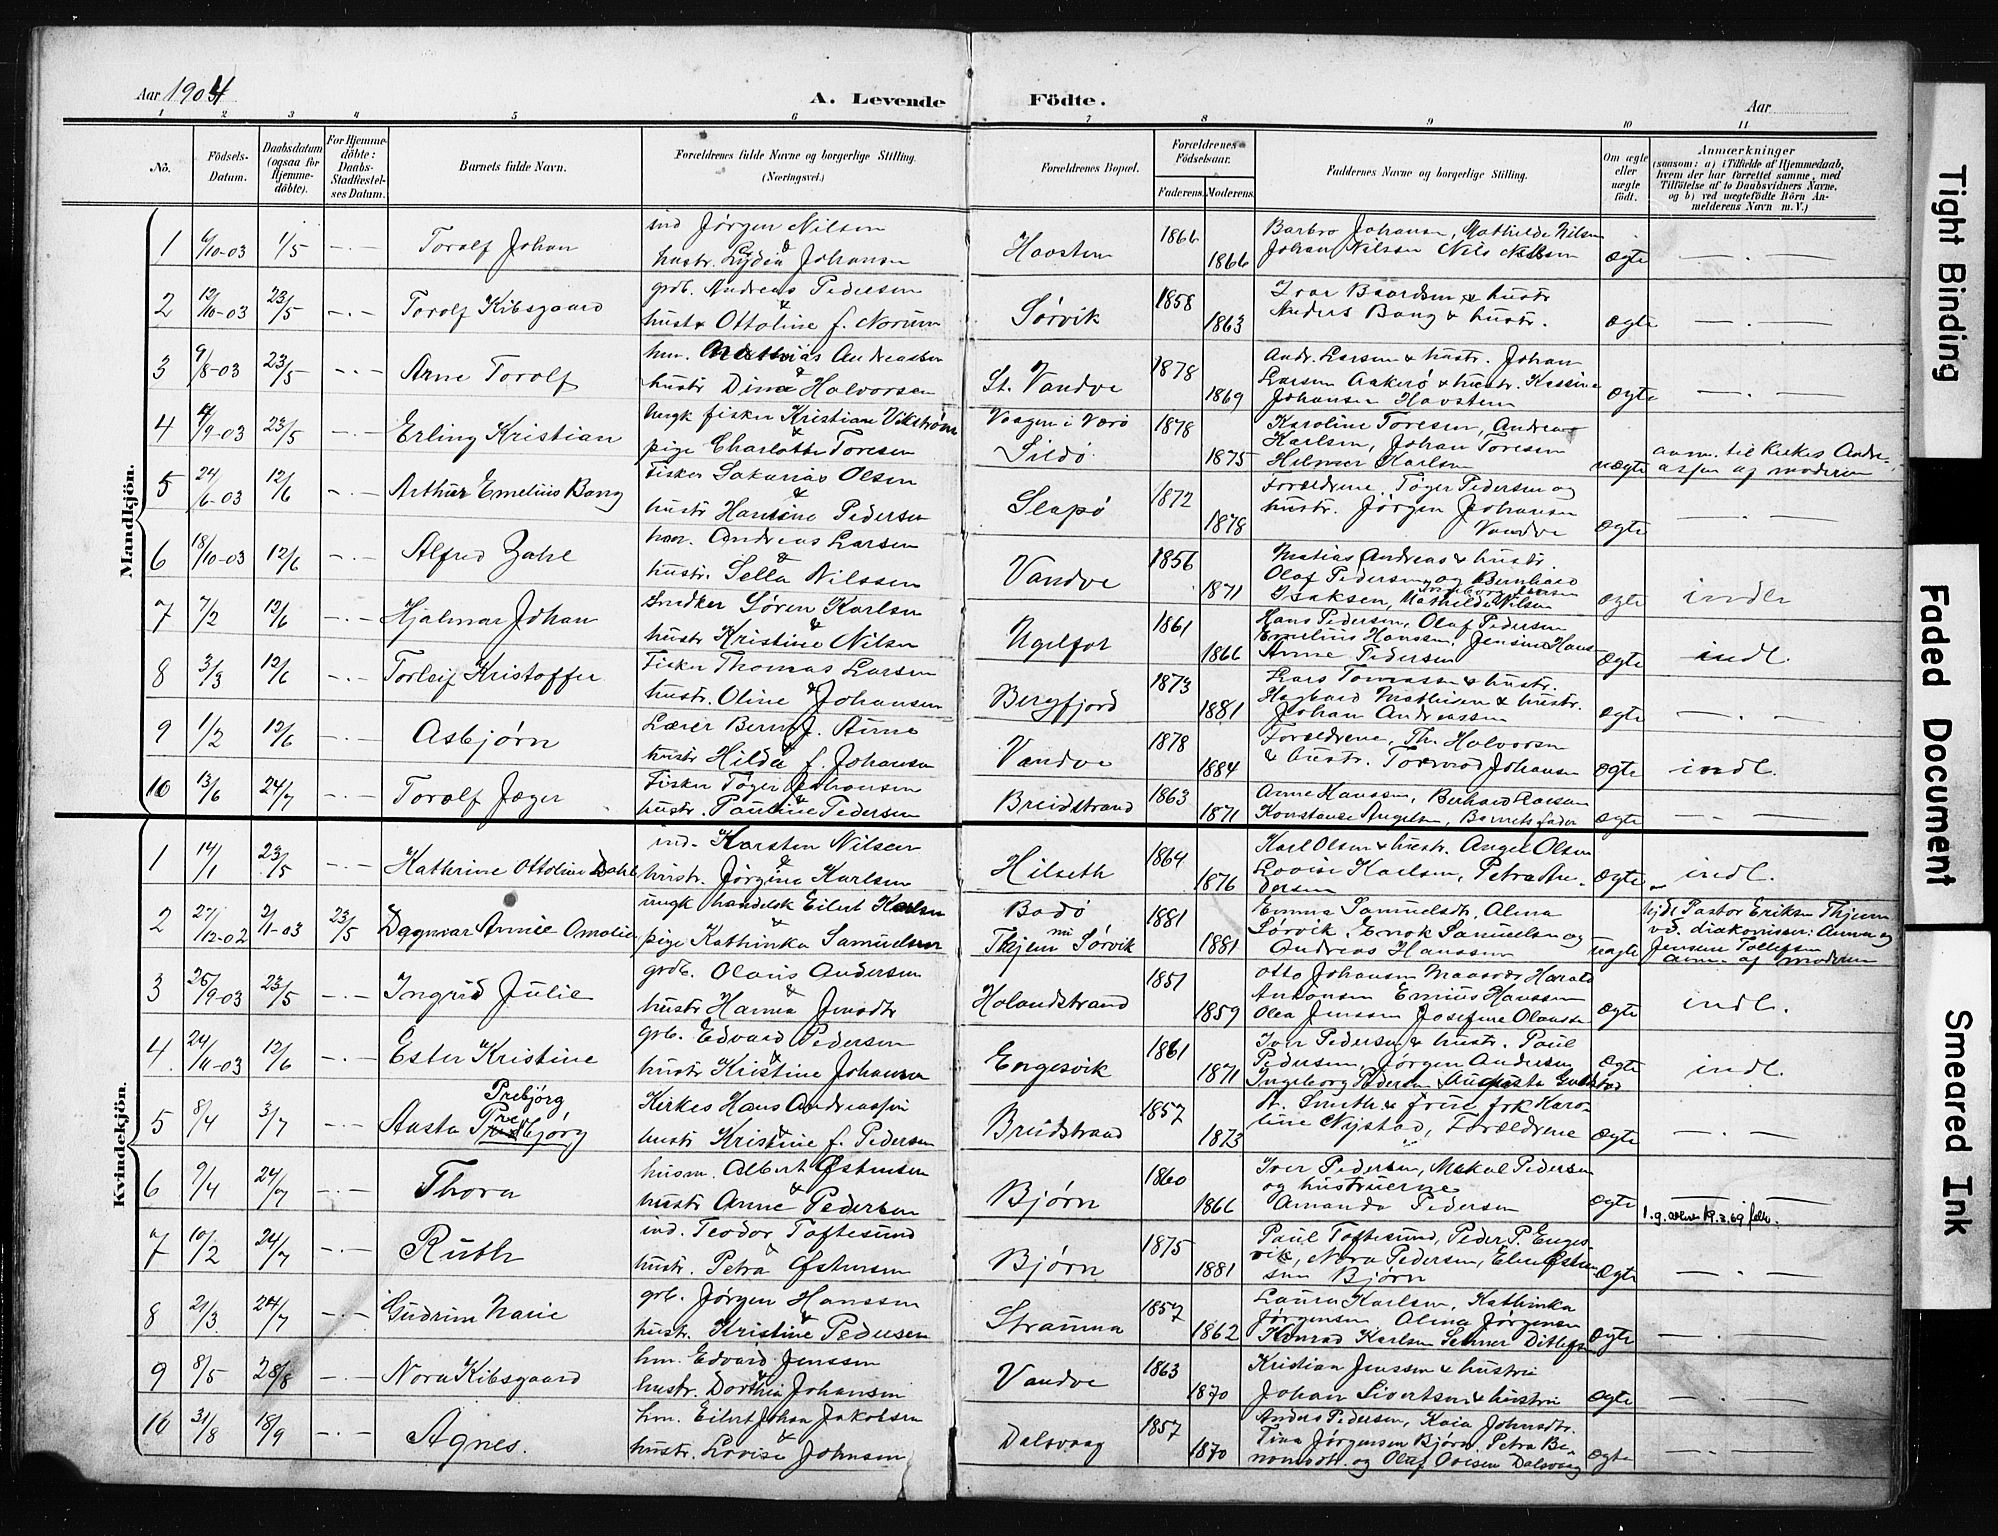 Aar 1904
A. Levende Födte.
Aar
1 2 3 4 5 6 7 8 9 10 11
No.
Födsels-Datum.
Daabsdatum (ogsaa for Hjemme-döbte).
For Hjemme-döbte: Daabs-Stadfæstelses Datum.
Barnets fulde Navn.
Forældrenes fulde Navne og borgerlige Stilling. (Næringsvei.)
Forældrenes Bopæl.
Forældrenes Födselsaar.
Faderens. Moderens.
Faddernes Navne og borgerlige Stilling.
Om ægte eller uægte födt.
Anmærkninger
(saasom: a) i Tilfælde af Hjemmedaab, hvem der har forrettet samme, med Tilföielse af to Daabsvidners Navne, og b) ved uægtefödte Börn Anmelderens Navn m. V.)
Mandkjön.
1 6/10-03 1/5 -.- Torolf Johan
ind Jørgen Nilsen & hustr. Lydia Johansen
Havstein 1866 1866
Barbro Johansen, Mathilde Nilsen
Johan Nilssen Nils Nilssen
ægte —.—
2 12/10-03 23/5 -.- Torolf Kibsgaard
grdb. Andreas Pedersen & hustr Ottoline f. Norum
Sørvik 1858 1863
Ivar Baardsen & hustr
Anders Bang & hustr.
ægte —.—
3 9/8-03 23/5 -.- Arne Torolf
hm. Mathias Andreassen & hustr Dina Halvorsen
St. Vandve 1878 1869
Andr. Larsen & hustr. Johan
Larsen Aakerø & hustr.
Johansen Havstein
ægte —.—
4 4/9-03 23/5 -.- Erling Kristian
ungk fisker Kristian Vikstrøm & pige Charlotte Toresen
Vaagen i Værø
Sildø 1878 1875
Karoline Toresen, Andreas
Karlsen, Johan Toresen
Hilmer Karlsen
uægte
anm. til Kirkes Andre-
assen af moderen
5 24/6-03 12/6 -.- Arthur Emelius Bang
Fisker Sakarias Olsen & hustr Hansine Pedersen
Slapø 1872 1878
Forældrene, Tøger Pedersen og
hustr. Jørgen Johansen
Vandve
ægte —.—
6 18/10-03 12/6 -.- Alfred Zahl
hm. Andreas Larsen & hustr. Sella Nilssen
Vandve 1856 1871
Matias Andreas & hustr.
Olaf Pedersen og Bernhard
Isaksen, Mathilde Nilsen
ægte indl.
7 7/2 12/6 -.- Hjalmar Johan
Snedker Søren Karlsen & hustr Kristine Nilsen
Ugelfor 1861 1866
Hans Pedersen, Olaf Pedersen
Emelius Hanssen, Jensine Hans
Anne Pedersen
ægte indl.
8 3/3 12/6 -.- Torleif Kristoffer
Fisker Thomas Larsen & hustr. Oline Johansen
Bergfjord 1873 1881
Lars Tomassen & hustr.
Hagbard Mathisen & hustr.
Johan Andreassen
ægte —.—
9 1/2 12/6 -.- Asbjørn
Lærer Bernh. J. Aune & hustr Hilda f. Johansen
Vandve 1878 1884
Forældrene, Th. Halvorsen
& hustr. Tormod Johansen
ægte indl.
10 13/6 24/7 Toralf Jæger
Fisker Tøger Johansen & hustr. Pauline Pedersen
Breidstrand 1863 1871
Anne Hanssen,
Konstanse Barnets fader
ægte —.—
Kvindekjön.
1 14/1 23/5 -.- Kathrine Ottoline Dahl
ind. Karsten Nilsen & hustr. Jørgine Karlsen
Hilseth 1864 1876
Karl Olsen & hustr. Angel Olsen
Lovise Karlsen, Petra Pe-
dersen
ægte indl.
2 27/12-02 2/1-03 23/5 Dagmar Annie Amalie
ungk handelsk Eilert Karlsen & pige Kathinka Samuelsen
Bodø nu
Thjem Sørvik 1881 1881
Emma Samuelsdtr, Alma
Sørvik, Enok Samuelsen og
Andreas Hanssen
uægte
hjdt. Pastor Eriksen Thjem
vid. diakonisser: Anna og
Jensine Tollefsen
anm. af moderen
3 26/9-03 23/5 -.- Ingrid Julie
grdb. Olaus Andersen & hustr Hanna Jensdtr
Holandstrand 1851 1859
Otto Johansen Maasvær Harald
Antonsen Emius Hanssen
Olea Jenssen Josefine Olaussen
ægte indl.
4 24/11-03 12/6 -.- Ester Kristine
grb. Edvard Pedersen & hustr Kristine Johansen
Engesvik 1861 1871
Iver Pedersen & hustr. Paul
Pedersen, Jørgen Andersen
Ingeborg Pedersen, Augusta
ægte indl.
5 8/4 3/7 -.- Aasta Prebjørg
Prebjørg
Kirkes Hans Andreassen & hustr Kristine f. Pedersen
Breidstrand 1857 1873
A. Smeth & frue frk Karo-
line Nystad, Forældrene
ægte —.—
6 9/4 24/7 -.- Thora
husm. Albert Østensen & hustr Anne Pedersen
Bjørn 1860 1866
Iver Pedersen, Mikal Pedersen
og hustruerne
Amanda Pedersen
ægte —.—
7 10/2 24/7 -.- Ruth
ind. Teodor Toftesund & hustr. Petra Østensen
Bjørn 1875 1881
Paul Toftesund, Peder P. Enges
vik, Nora Pedersen, Elen Østen
sen Bjørn
ægte —.—
8 21/3 24/7 -.- Gudrun Marie
grb. Jørgen Hanssen & hustr. Kristine Pedersen
Strauma 1857 1862
Laura Karlsen, Kathinka
Jørgensen Alma Jørgensen
Konrad Karlsen Selmer Ditlefsen
ægte —.—
9 8/5 28/8 -.- Nora Kibsgaard
hm. Edvard Jenssen & hustr. Dorthea Johansen
Vandve 1863 1870
Kristian Jenssen & hustru
Johan Sivertsen & hustru
ægte —.—
10 31/8 18/9 -.- Agnes.
hm. Eilert Johan Jakobsen & hustr. Lovise Johnsen
Dalsvaag 1857 1870
Anders Pedersen, Kaia Johnsdtr.
Tina Jørgensen Bjørn. Petra Be-
nonisdtr. og Olaf Ovesen Dalsvaag
ægte —.—
Tight Binding
Faded Document
Smeared Ink